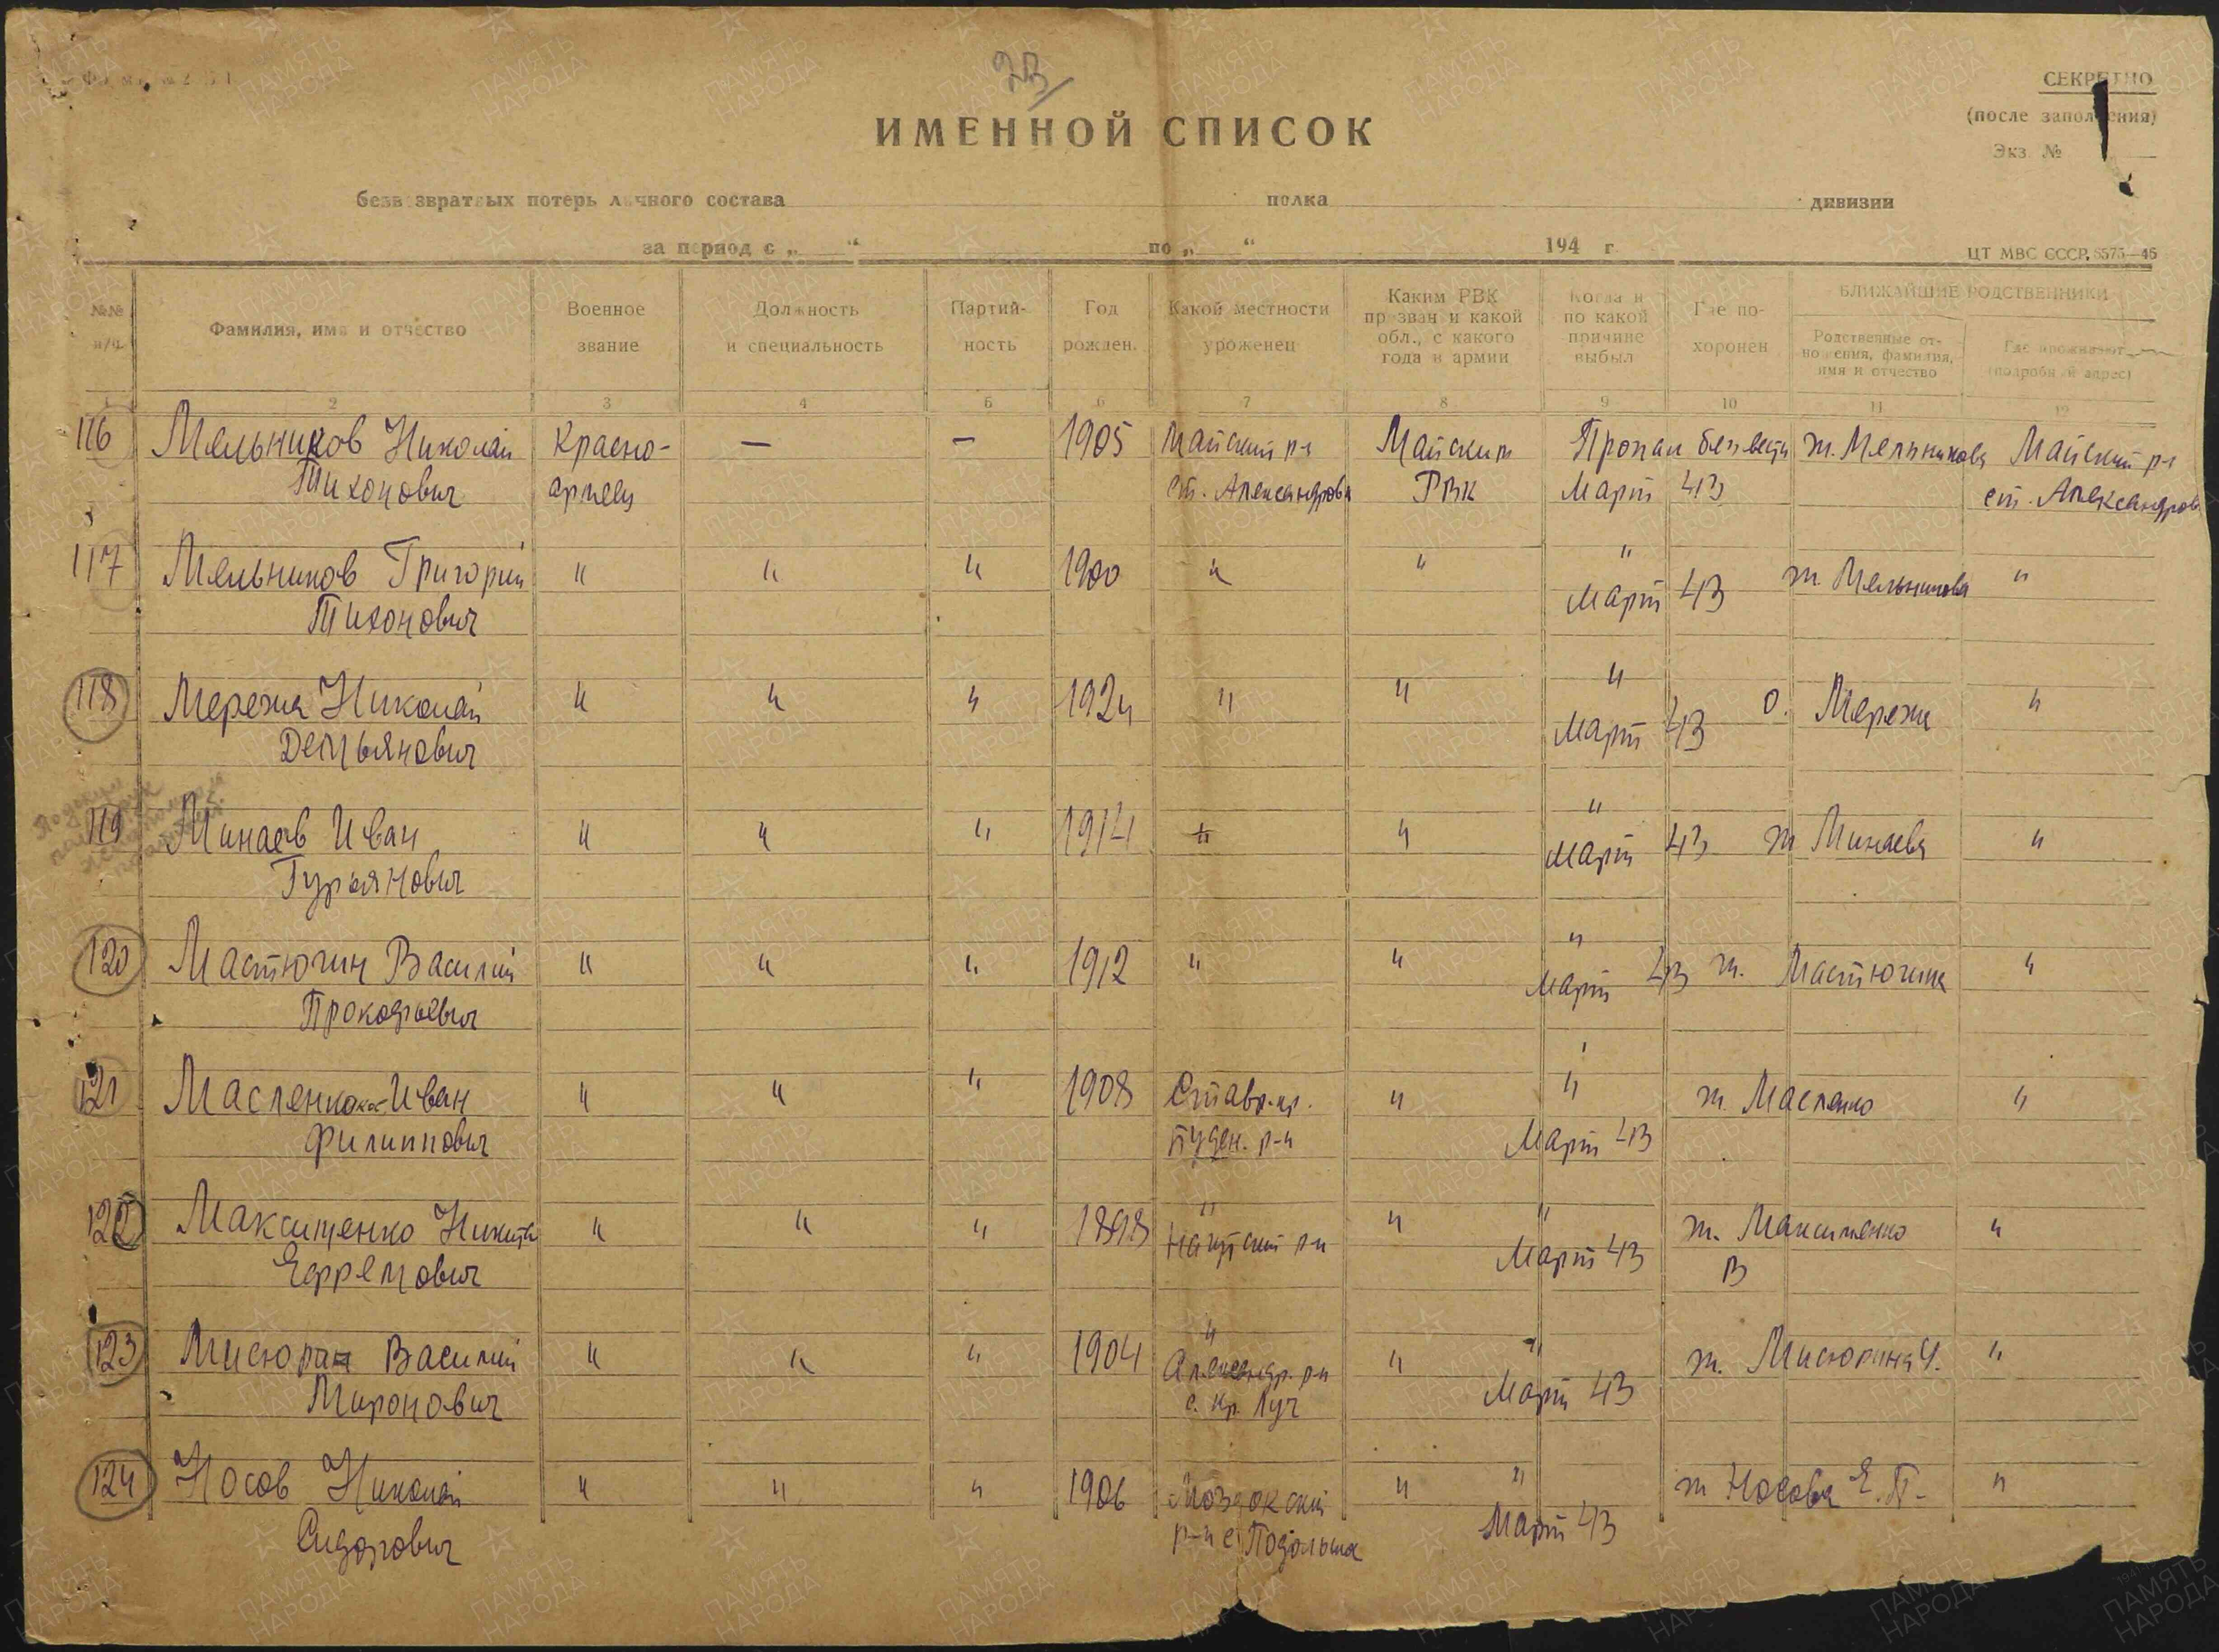 23
СЕКРЕТНО
(после заполнения)
Экз. №
ИМЕННОЙ СПИСОК
безвозвратных потерь личного состава полка дивизии
за период с „ “ по „ “ 194 г.
ЦТ МВС СССР, 6575—46
№№ п/п
Фамилия, имя и отчество
Военное звание
Должность и специальность
Партий-ность
Год рожден.
Какой местности уроженец
Каким РВК призван и какой обл., с какого года в армии
Когда и по какой причине выбыл
Где по-хоронен
БЛИЖАЙШИЕ РОДСТВЕННИКИ
Родственные от-ношения, фамилия, имя и отчество
Где проживают (подробный адрес)
1 2 3 4 5 6 7 8 9 10 11 12
116 Мельников Николай Красно- — — 1905 Майский р-н Майским Пропал без вести ж. Мельникова Майский р-н
Тихонович армеец ст. Александровк РВК Март 43 ст. Александровк
117 Мельников Григорий " " " 1900 " " " ж. Мельникова "
Тихонович Март 43
118 Мережа Николай " " " 1924 " " " о. Мережа "
Демьянович Март 43
119 Минаев Иван " " " 1914 " " " ж Минаева "
Гурьянович Март 43
120 Мастюгин Василий " " " 1912 " " " ж. Мастюгина "
Прокофьевич Март 43
121 Масленко Иван " " " 1908 Ставр.кр. " " ж. Масленко "
Филиппович р-н Март 43
122 Максименко Никита " " " 1898 " " " ж. Максименко "
Ефремович р-н Март 43 В
123 Мисюран Василий " " " 1904 " " " ж. Мисюрина "
Миронович Александр. р-н Март 43
с. Кр. Луч
124 Носов Николай " " " 1906 Моздокский " " ж Носова Е.П. "
Сидорович р-н с. Март 43